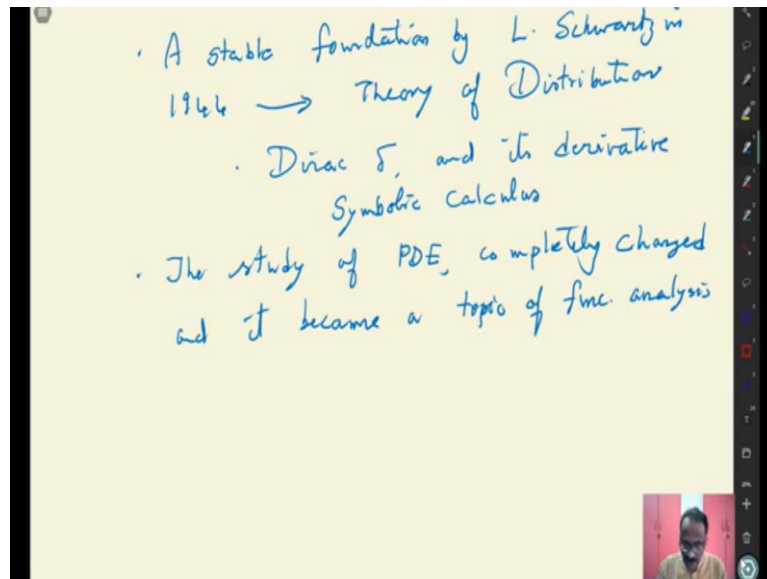 · A stable foundation by L. Schwartz in
1944 → Theory of Distribution
· Dirac δ, and its derivative
Symbolic Calculus
· The study of PDE, completely changed
and it became a topic of func. analysis